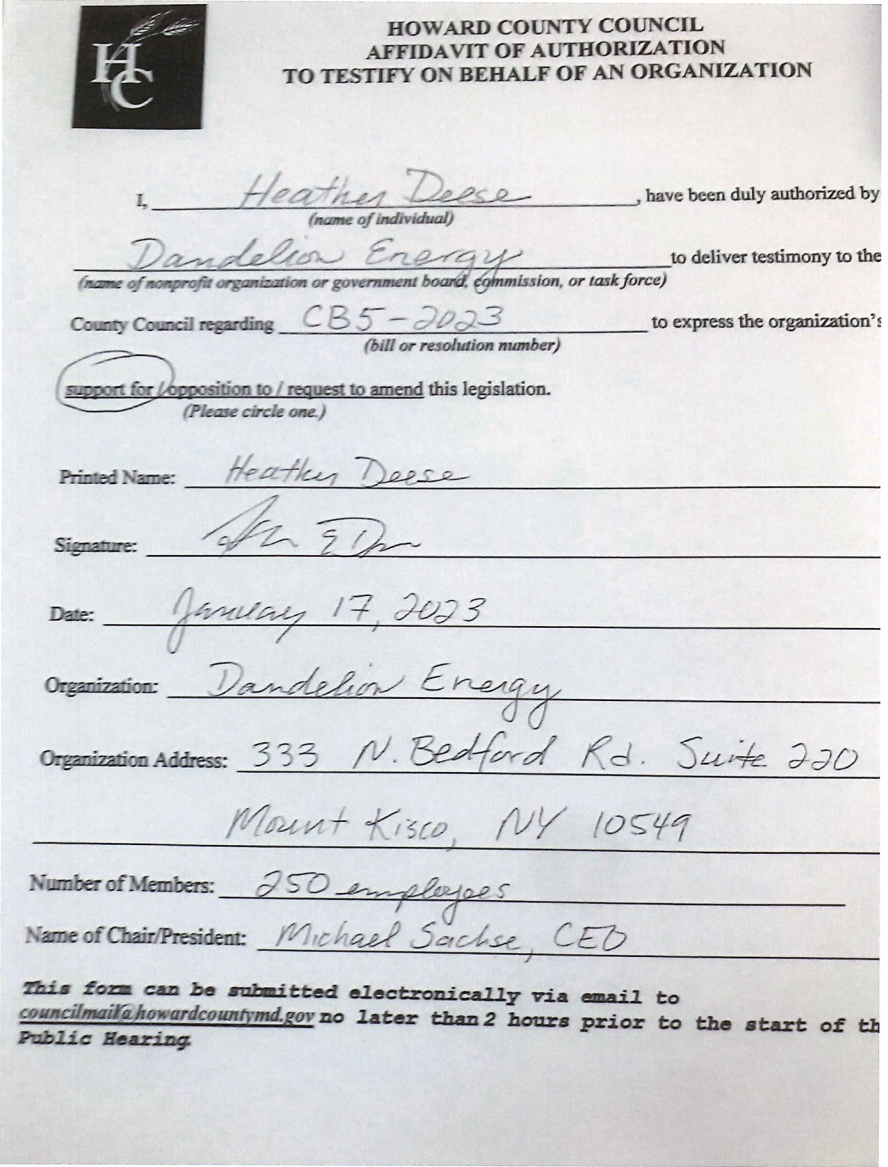 HC
HOWARD COUNTY COUNCIL
AFFIDAVIT OF AUTHORIZATION
TO TESTIFY ON BEHALF OF AN ORGANIZATION
I, Heather Deese, have been duly authorized by
(name of individual)
Dandelion Energy to deliver testimony to the
(name of nonprofit organization or government board, commission, or task force)
County Council regarding CB5-2023 to express the organization's
(bill or resolution number)
support for / opposition to / request to amend this legislation.
(Please circle one.)
Printed Name: Heather Deese
Signature:
Date: January 17, 2023
Organization: Dandelion Energy
Organization Address: 333 N. Bedford Rd. Suite 220
Mount Kisco, NY 10549
Number of Members: 250 employees
Name of Chair/President: Michael Sachse, CEO
This form can be submitted electronically via email to
councilmail@howardcountymd.gov no later than 2 hours prior to the start of th
Public Hearing.